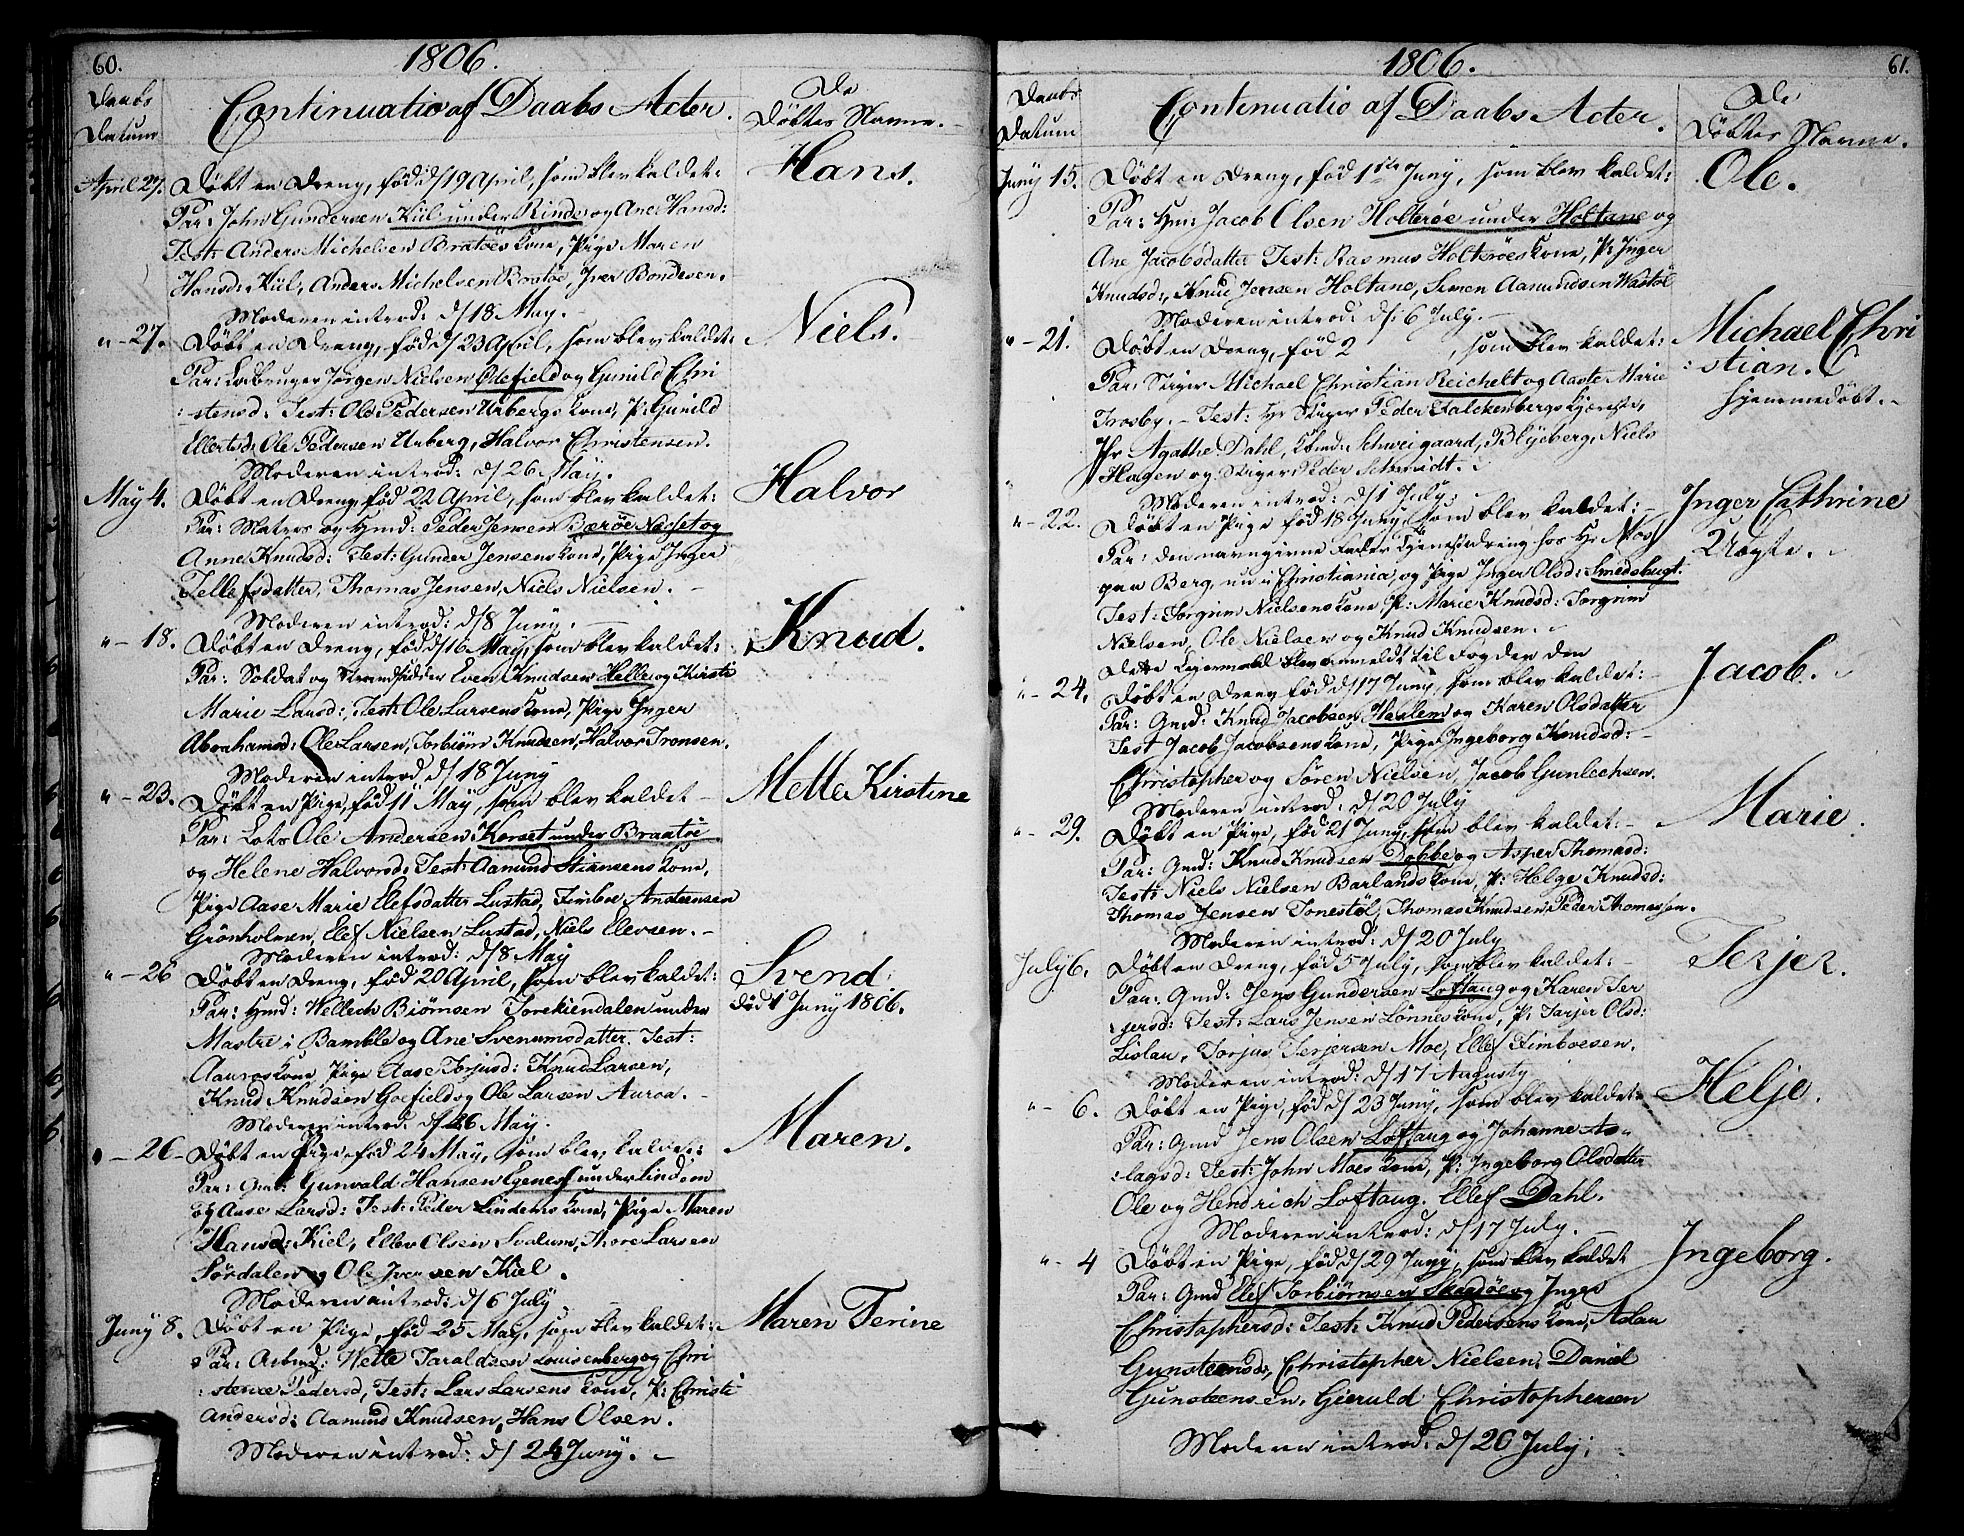 60.
1806.
Daabs
Datum
Continuatio af Daabs Acter.
De
Döbtes Navne.
April 27.
Döbt en Dreng, föd d/19 April, som blev kaldet:
Hans.
Par: John Gundersen Kiil under Rinde og Ane Hansd:
Test: Anders Michelsen Bratöes Kone, Pige Maren
Hansd: Kiil, Anders Michelsen Bratöe, Iver Bondesen.
Moderen introd: d/18 May.
" - 27.
Döbt en Dreng, föd d/23 April, som blev kaldet:
Niels.
Par: Lodbruger Jörgen Nielsen Ödefield og Gunild Chri
:stensd: Test: Ole Pedersen Urbergs Kone, P: Gunild
Ellertsd: Ole Pedersen Urberg, Halvor Christensen.
Moderen introd: d/26 May.
May 4.
Döbt en Dreng, föd 22 April, som blev kaldet:
Halvor
Par: Matros og Hmd: Peder Jensen Baröe Nachet og
Anne Knudsd: Test: Gunder Jensens Kone, Pige Inger
Tellefsdatter, Thomas Jensen, Niels Nielsen.
Moderen introd: d/8 Juny.
" - 18.
Döbt en Dreng, föd d/16 May, som blev kaldet:
Knud.
Par: Soldat og Strandsidder Even Knudsen Helle og Kirsti
Marie Larsd:, Test: Ole Larsens Kone, Pige Inger
Abrahamsd: Ole Larsen, Torbiörn Knudsen, Halvor Tronsen.
Moderen introd d/18 Juny
" - 23.
Döbt en Pige, föd 11 May, som blev kaldet
Mette Kirstine
Par: Lots Ole Andersen Korset under Braatöe
og Helene Halvorsd: Test: Aamund Stiansens Kone,
Pige Aase Marie Elefsdatter Lustad, Fimboe Ansteensen
Grönholmen, Elef Nielsen Lustad, Niels Elevsen.
Moderen introd: d/8 May
" - 26
Döbt en Dreng, föd 20 April, som blev kaldet:
Svend
Död 1 Juny 1806.
Par: Hmd: Wellech Biörnsen Torekiendalen under
Mastre i Bamble og Ane Svenumsdatter, Test:
Aauroes Kone, Pige Aase Torjusd: Knud Larsen,
Knud Knudsen Goefield og Ole Larsen Auroa.
Moderen introd: d/26 May.
" - 26
Döbt en Pige, föd 24 May, som blev kaldet:
Maren.
Par: Gmd: Gunvald Hansen Egenes under Lindem
og Aase Larsd: Test: Peder Lindems Kone, Pige Maren
Hansd: Kiel, Ellev Olsen Svalum, Thore Larsen
Sördalen og Ole Iversen Kiel.
Moderen introd: d/6 July
Juny 8.
Döbt en Pige, föd 25 May, som blev kaldet:
Maren Terine
Par: Arbmd: Wette Taraldsen Louisenberg og Chri
:stence Pedersd, Test: Lars Larsens Kone, P: Christi
Andersd: Aamund Knudsen, Hans Olsen.
Moderen introd: d/24 Juny.
1806.
61.
Daabs
Datum
Continuatio af Daabs Acter.
De
Döbtes Navne.
Juny 15.
Döbt en Dreng, föd 1ste Juny, som blev kaldet:
Ole.
Par: Hmd: Jacob Olsen Holteröe under Holtane og
Ane Jacobsdatter Test: Rasmus Holteröes Kone, P: Inger
Knudsd:, Knud Jensen Holtane, Simen Aamundsen Wastöl
Moderen introd: d: 6 July.
" - 21.
Döbt en Dreng, föd 2 , som blev kaldet:
Michael Chri
:stian.
hjemmedöbt.
Par: Stiger Michael Christian Reichelt og Aaste Marie
Trosby. Test: Hr Stiger Peder Falckenbergs Kjæreste,
Jfr Agathe Dahl, Kbmd: Schweigaard, Blyeberg, Niels
Hagen og Stiger Peder Schmidt.
Moderen introd: d/1 July.
" - 22.
Döbt en Pige föd 18 Juny, som blev kaldet:
Inger Cathrine
Uægte.
Par: den navngivne Fader Tjenestedreng hos Hr Mos
gaa Berg, nu i Christiania, og Pige Inger Olsd: Smedsbugt.
Test: Torgrim Nielsens Kone, P: Marie Knudsd: Torgrim
Nielsen, Ole Nielsen og Knud Knudsen.
Dette Lejermaal blev anmeldt til Fogden den
" - 24.
Döbt en Dreng föd d/17 Juny, som blev kaldet:
Jacob.
Par: Gmd: Knud Jacobsen Heslem og Karen Olsdatter
Test Jacob Jacobsens Kone, Pige Ingeborg Knudsd:
Christopher og Sören Nielsen, Jacob Gunlechsen.
Moderen introd: d/20 July
" - 29.
Döbt en Pige, föd 21 Juny, som blev kaldet:
Marie.
Par: Gmd: Knud Knudsen Dobbe og Asper Thomasd:
Test: Niels Nielsen Barlands Kone, P: Helge Knudsd:
Thomas Jensen Tonestöl, Thomas Knudsen, Peder Thomassen.
Moderen introd: d/20 July
July 6.
Döbt en Dreng, föd 5 July, som blev kaldet:
Terjer.
Par: Gmd: Jens Gundersen Loftaug og Karen Ter
:jersd: Test: Lars Jensen Lönnes Kone, P: Tarjer Olsd:
Lislau, Torjus Terjersen Moe, Ellef Fimboesen.
Moderen introd: d/17 Augusty
" - 6.
Döbt en Pige, föd d/23 Juny, som blev kaldet:
Helje.
Par: Gmd Jens Olsen Loftaug og Johanne As
:lagsd: Test: John Moes Kone, P: Ingeborg Olsdatter
Ole og Hendrich Loftaug. Ellef Dahl.
Moderen introd: d/17 July.
" - 4
Döbt en Pige, föd d/29 Juny, som blev kaldet
Ingeborg.
Par: Gmd Elef Torbiörnsen Skaadöe og Inger
Christophersd: Test: Knud Pedersens Kone, Aslau
Gunsteensd:, Christopher Nielsen, Daniel
Gunsteensen, Gieruld Christophersen
Moderen introd: d/26 July.